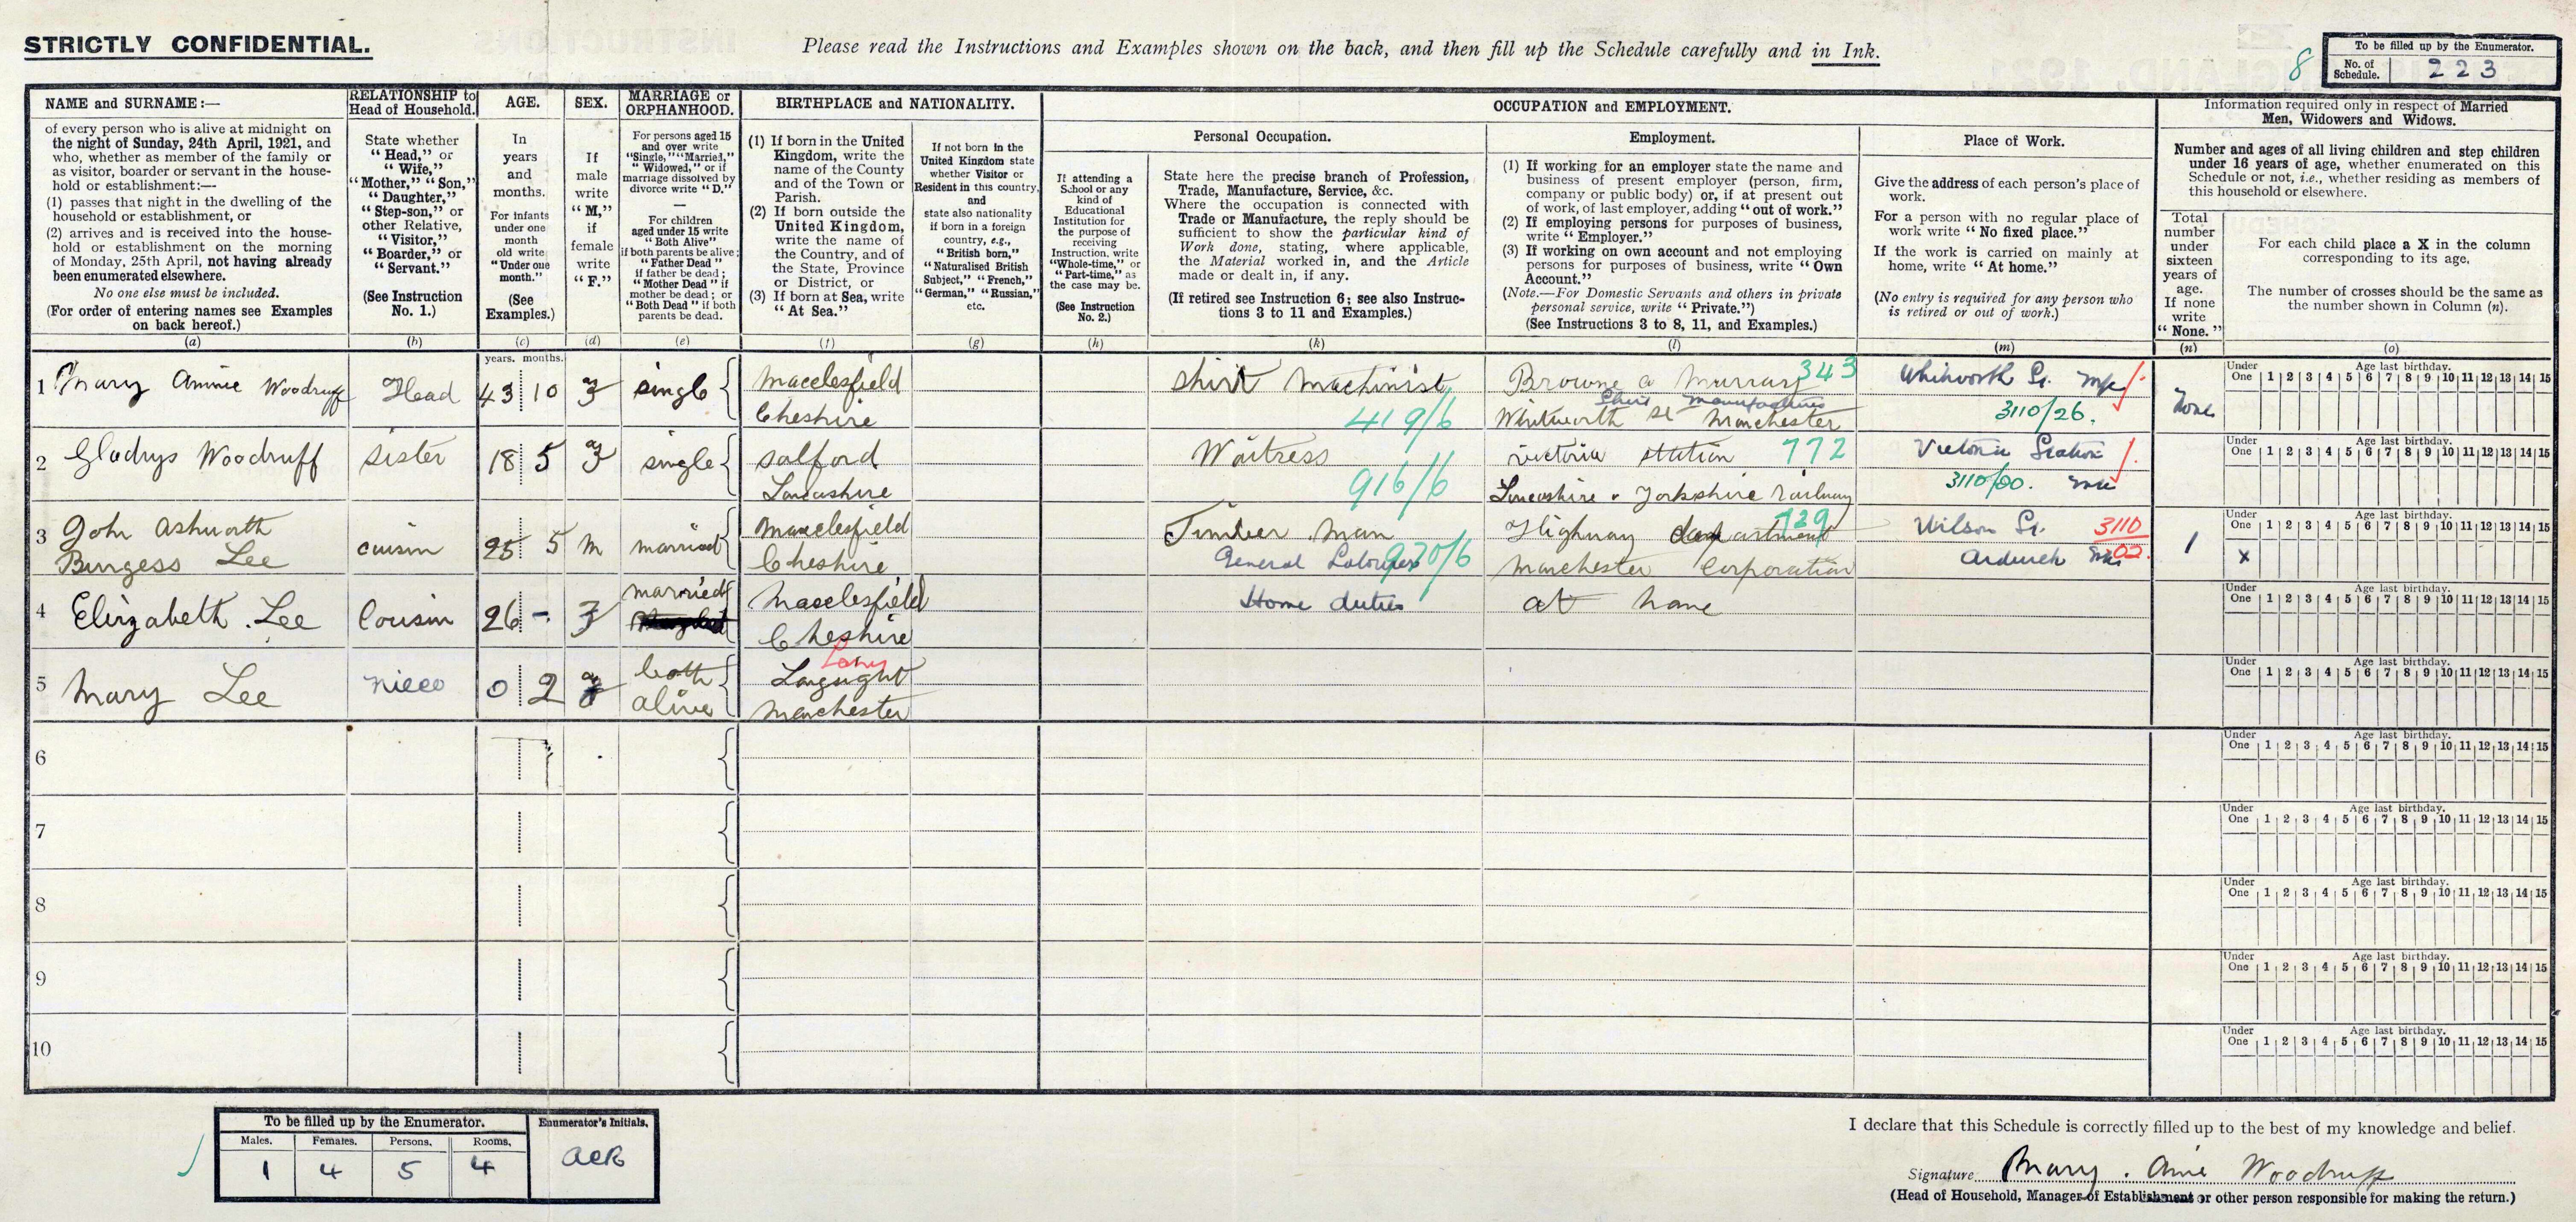 STRICTLY CONFIDENTIAL.
Please read the Instructions and Examples shown on the back, and then fill up the Schedule carefully and in Ink.
8
To be filled up by the Enumerator.
No. of Schedule. 223
NAME and SURNAME:—
of every person who is alive at midnight on
the night of Sunday, 24th April, 1921, and
who, whether as member of the family or
as visitor, boarder or servant in the house-
hold or establishment:—
(1) passes that night in the dwelling of the
household or establishment, or
(2) arrives and is received into the house-
hold or establishment on the morning
of Monday, 25th April, not having already
been enumerated elsewhere.
No one else must be included.
(For order of entering names see Examples
on back hereof.)
(a)
RELATIONSHIP to
Head of Household.
State whether
"Head," or
"Wife,"
"Mother," "Son,"
"Daughter,"
"Step-son," or
other Relative,
"Visitor,"
"Boarder," or
"Servant."
(See Instruction
No. 1.)
(b)
AGE.
In
years
and
months.
For infants
under one
month
old write
"Under one
month."
(See
Examples.)
(c)
years. months.
SEX.
If
male
write
"M,"
if
female
write
"F."
(d)
MARRIAGE or
ORPHANHOOD.
For persons aged 15
and over write
"Single," "Married,"
"Widowed," or if
marriage dissolved by
divorce write "D."
—
For children
aged under 15 write
"Both Alive"
if both parents be alive;
"Father Dead" if
if father be dead;
"Mother Dead" if
mother be dead; or
"Both Dead" if both
parents be dead.
(e)
BIRTHPLACE and NATIONALITY.
(1) If born in the United
Kingdom, write the
name of the County
and of the Town or
Parish.
(2) If born outside the
United Kingdom,
write the name of
the Country, and of
the State, Province
or District, or
(3) If born at Sea, write
"At Sea."
(f)
If not born in the
United Kingdom state
whether Visitor or
Resident in this country,
and
state also nationality
if born in a foreign
country, e.g.,
"British born,"
"Naturalised British
Subject," "French,"
"German," "Russian,"
etc.
(g)
OCCUPATION and EMPLOYMENT.
If attending a
School or any
kind of
Educational
Institution for
the purpose of
receiving
Instruction, write
"Whole-time," or
"Part-time," as
the case may be.
(See Instruction
No. 2.)
(h)
Personal Occupation.
State here the precise branch of Profession,
Trade, Manufacture, Service, &c.
Where the occupation is connected with
Trade or Manufacture, the reply should be
sufficient to show the particular kind of
Work done, stating, where applicable,
the Material worked in, and the Article
made or dealt in, if any.
(If retired see Instruction 6; see also Instruc-
tions 3 to 11 and Examples.)
(k)
Employment.
(1) If working for an employer state the name and
business of present employer (person, firm,
company or public body) or, if at present out
of work, of last employer, adding "out of work."
(2) If employing persons for purposes of business,
write "Employer."
(3) If working on own account and not employing
persons for purposes of business, write "Own
Account."
(Note.—For Domestic Servants and others in private
personal service, write "Private.")
(See Instructions 3 to 8, 11, and Examples.)
(l)
Place of Work.
Give the address of each person's place of
work.
For a person with no regular place of
work write "No fixed place."
If the work is carried on mainly at
home, write "At home."
(No entry is required for any person who
is retired or out of work.)
(m)
Information required only in respect of Married
Men, Widowers and Widows.
Number and ages of all living children and step children
under 16 years of age, whether enumerated on this
Schedule or not, i.e., whether residing as members of
this household or elsewhere.
Total
number
under
sixteen
years of
age.
If none
write
"None."
(n)
For each child place a X in the column
corresponding to its age.
The number of crosses should be the same as
the number shown in Column (n).
(o)
1 Mary Annie Woodruff Head 43 10 F single Macclesfield Cheshire shirt Machinist 419/6 Browne & Murray 343
Shirt Manufacturers
Whitworth St Manchester Whitworth St. M/c 3110/26. None
Under One Age last birthday. 1 2 3 4 5 6 7 8 9 10 11 12 13 14 15
2 Gladys Woodruff sister 18 5 F single Salford Lancashire Waitress 916/6 Victoria Station 772
Lancashire & Yorkshire Railway Victoria Station 3110/00.
Under One Age last birthday. 1 2 3 4 5 6 7 8 9 10 11 12 13 14 15
3 John Ashworth
Burgess Lee cuisin 25 5 M married Macclesfield Cheshire Timber Man
General Labourer 970/6 Highway department 729
Manchester Corporation Wilson St. Ardwick 3110/02. 1
Under One Age last birthday. 1 2 3 4 5 6 7 8 9 10 11 12 13 14 15
X
4 Elizabeth Lee Cousin 26 - F married Macclesfield Cheshire Home duties at home
Under One Age last birthday. 1 2 3 4 5 6 7 8 9 10 11 12 13 14 15
5 Mary Lee niece 0 2 F both alive Longsight Manchester
Under One Age last birthday. 1 2 3 4 5 6 7 8 9 10 11 12 13 14 15
6
Under One Age last birthday. 1 2 3 4 5 6 7 8 9 10 11 12 13 14 15
7
Under One Age last birthday. 1 2 3 4 5 6 7 8 9 10 11 12 13 14 15
8
Under One Age last birthday. 1 2 3 4 5 6 7 8 9 10 11 12 13 14 15
9
Under One Age last birthday. 1 2 3 4 5 6 7 8 9 10 11 12 13 14 15
10
Under One Age last birthday. 1 2 3 4 5 6 7 8 9 10 11 12 13 14 15
To be filled up by the Enumerator.
Males. Females. Persons. Rooms.
1 4 5 4
Enumerator's Initials.
I declare that this Schedule is correctly filled up to the best of my knowledge and belief.
Signature Mary. Anie Woodruff
(Head of Household, Manager of Establishment or other person responsible for making the return.)